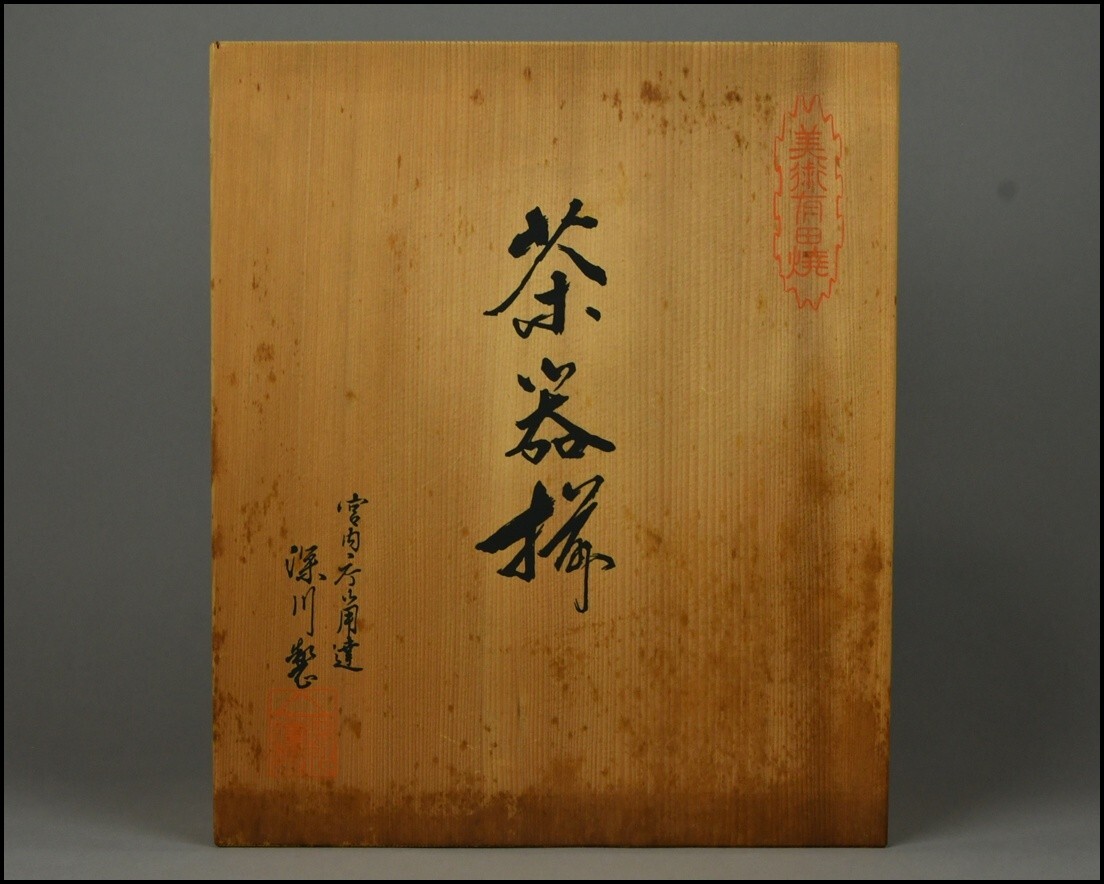 美術有田燒
茶器揃
宮内庁御用達
深川製